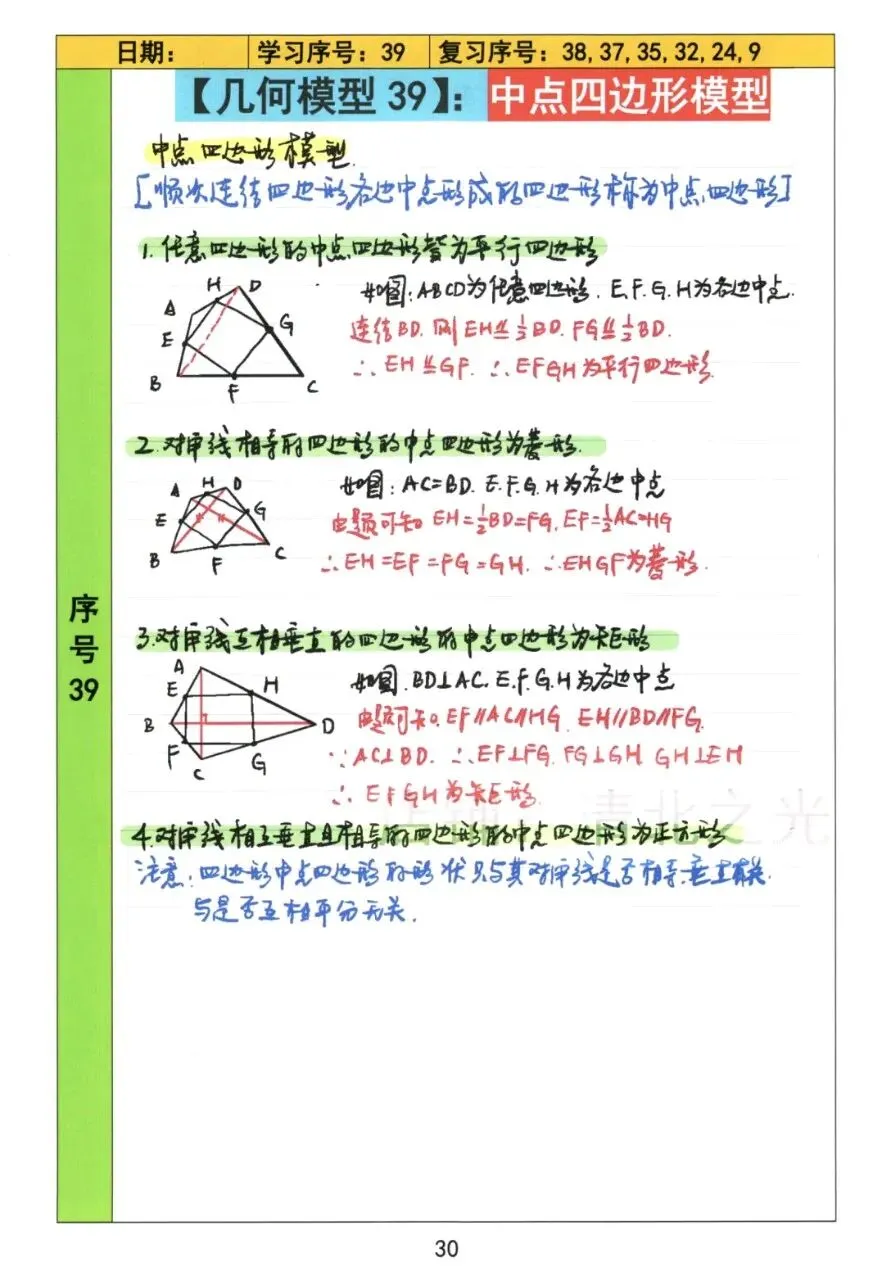 日期： 学习序号：39 复习序号：38, 37, 35, 32, 24, 9
【几何模型 39】：中点四边形模型
中点四边形模型.
[顺次连结四边形各边中点形成的四边形称为中点四边形]
1. 任意四边形的中点四边形皆为平行四边形
如图：ABCD为任意四边形. E.F.G.H为各边中点.
连结BD. 则EH⫽½BD. FG⫽½BD.
∴ EH⫽GF. ∴ EFGH为平行四边形.
A
H
D
E
G
B
F
C
2. 对角线相等的四边形的中点四边形为菱形.
如图：AC=BD. E.F.G.H为各边中点
由题可知 EH=½BD=FG, EF=½AC=HG
∴ EH=EF=FG=GH. ∴EHGF为菱形.
A
H
D
E
G
B
F
C
3. 对角线互相垂直的四边形的中点四边形为矩形
如图. BD⊥AC. E.F.G.H为各边中点
由题可知. EF∥AC∥HG. EH∥BD∥FG.
∵AC⊥BD. ∴EF⊥FG. FG⊥GH. GH⊥EH
∴ EFGH为矩形.
A
E
H
B
D
F
G
C
4. 对角线相互垂直且相等的四边形的中点四边形为正方形
注意：四边形中点四边形的形状只与其对角线是否相等.垂直有关.
与是否互相平分无关.
清北之光
序号39
30